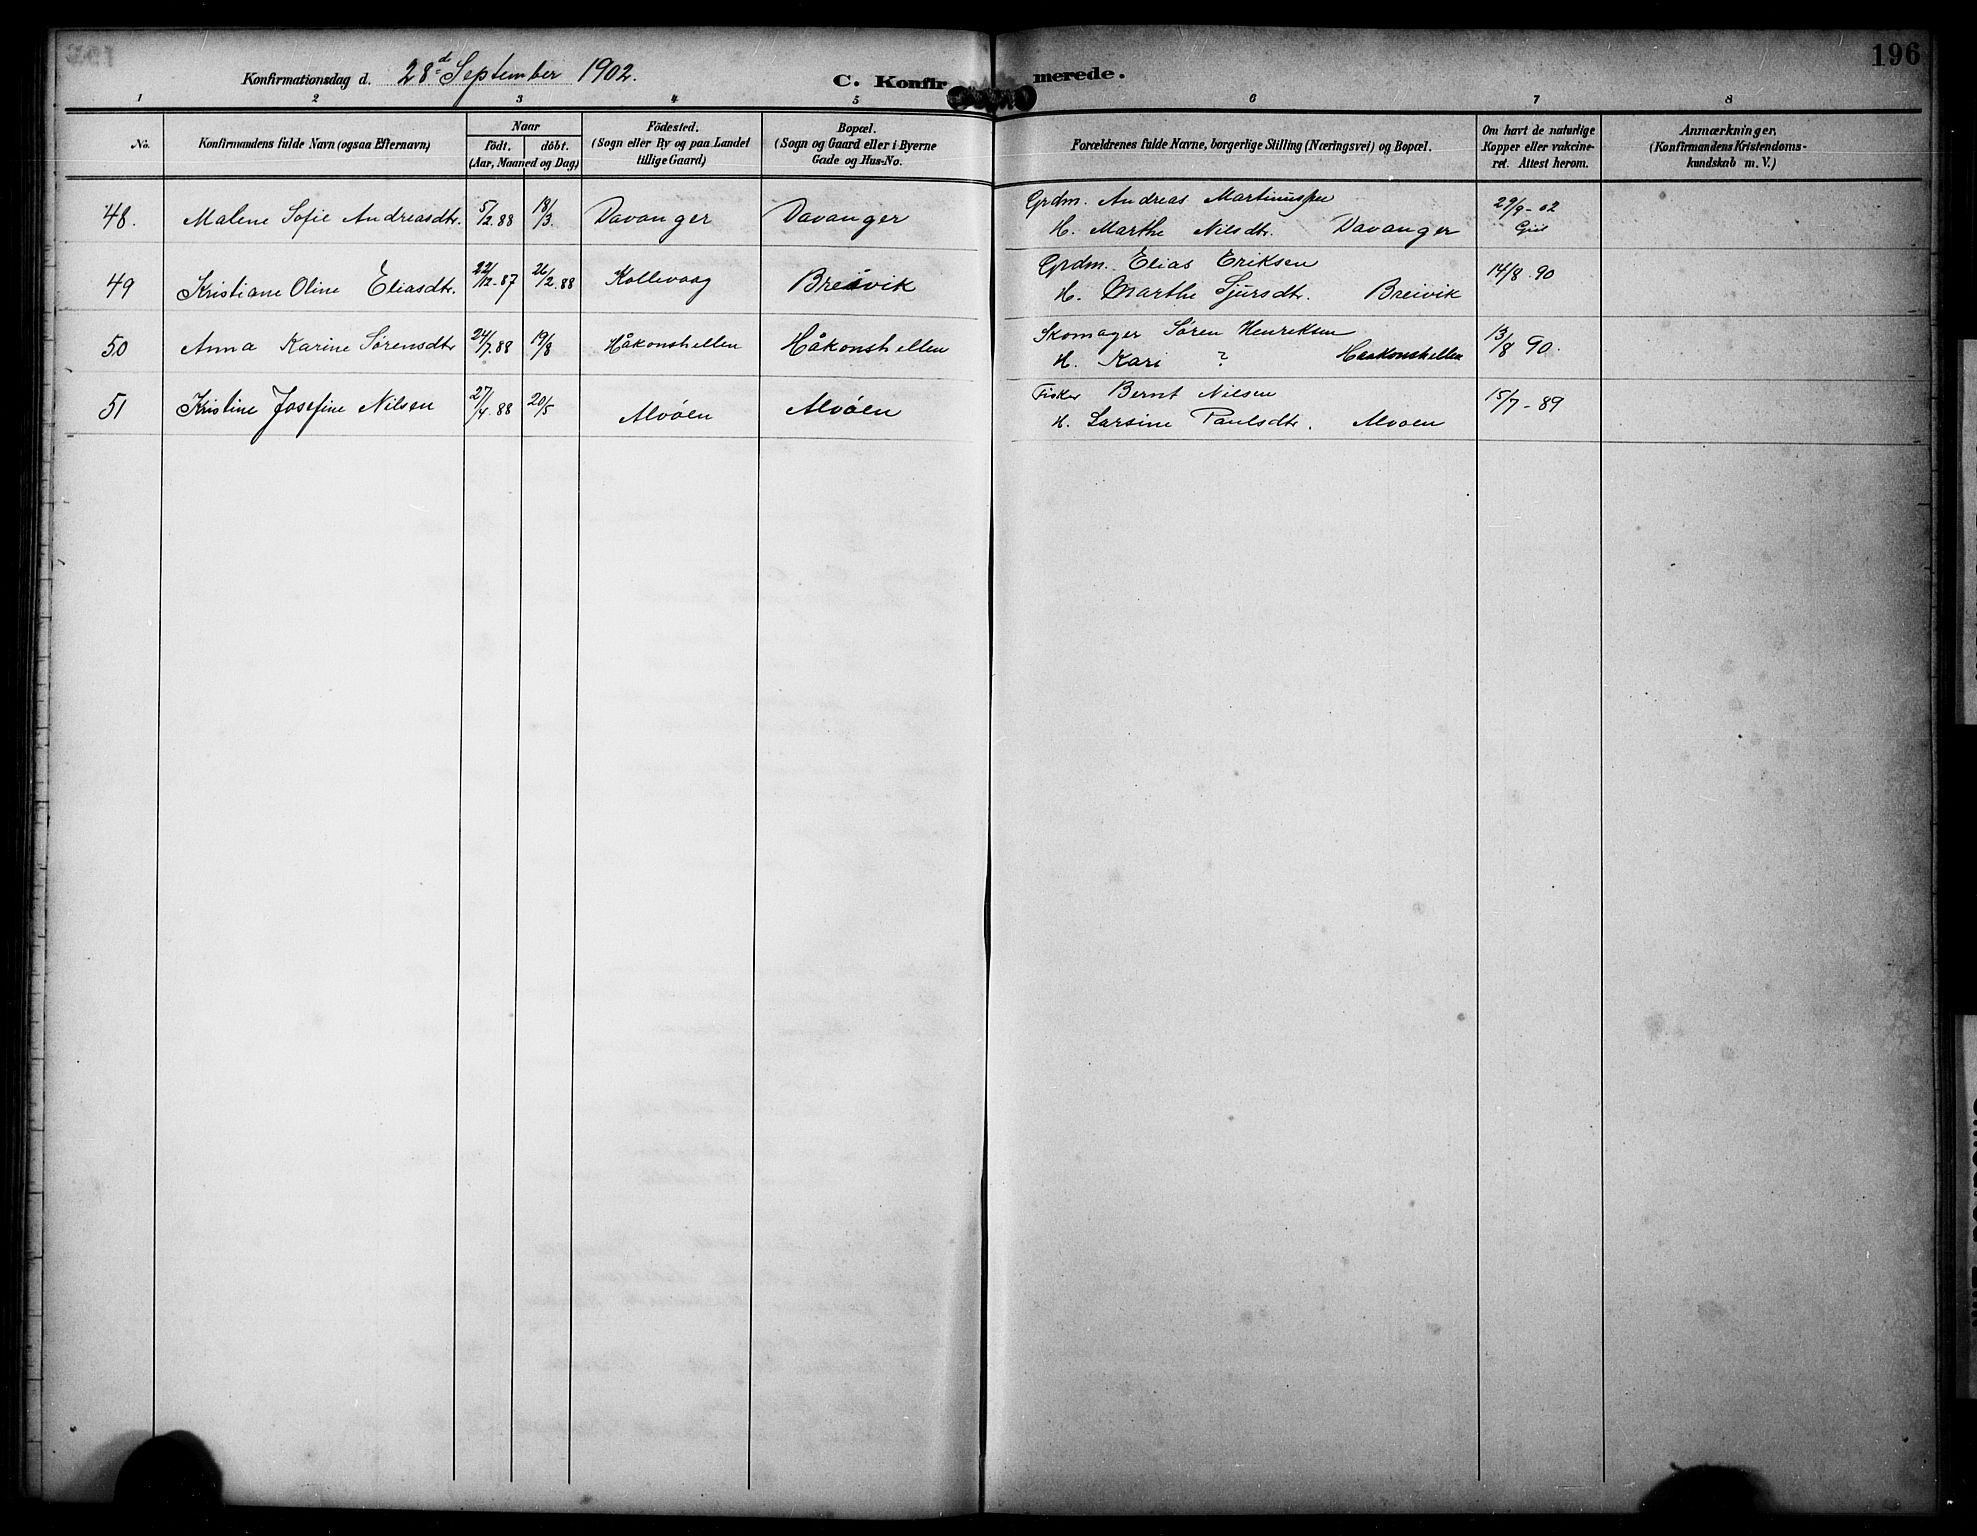 196
Konfirmationsdag d. 28de September 1902.
C. Konfirmerede.
1 2 3 4 5 6 7 8
No.
Konfirmandens fulde Navn (ogsaa Efternavn)
Naar
födt. döbt.
(Aar, Maaned og Dag)
Födested.
(Sogn eller By og paa Landet
tillige Gaard)
Bopæl.
(Sogn og Gaard eller i Byerne
Gade og Hus-No.
Forældrenes fulde Navne, borgerlige Stilling (Næringsvei) og Bopæl.
Om havt de naturlige
Kopper eller vakcine-
ret. Attest herom.
Anmærkninger.
(Konfirmandens Kristendoms-
kundskab m. V.)
48. Malene Sofie Andreasdtr. 5/2.88 18/3. Davanger Davanger
Grdm. Andreas Martinussen
H. Marthe Nilsdtr. Davanger
29/9-02
49 Kristiane Oline Eliasdtr. 22/12-87 26/2 88 Kollevaag Breivik
Grdm. Elias Eriksen
H. Marthe Sjursdtr. Breivik
14/8-90
50 Anna Karine Sørensdtr 24/7.88 19/8 Håkonshellen Håkonshellen
Skomager Søren Henriksen
H. Kari ? Haakonshellen
13/8 90.
51 Kristine Josefine Nilsen 27/4.88 20/5 Alvöen Alvöen
Fisker Bernt Nilsen
H. Larsine Paulsdtr. Alvoen
15/7-89